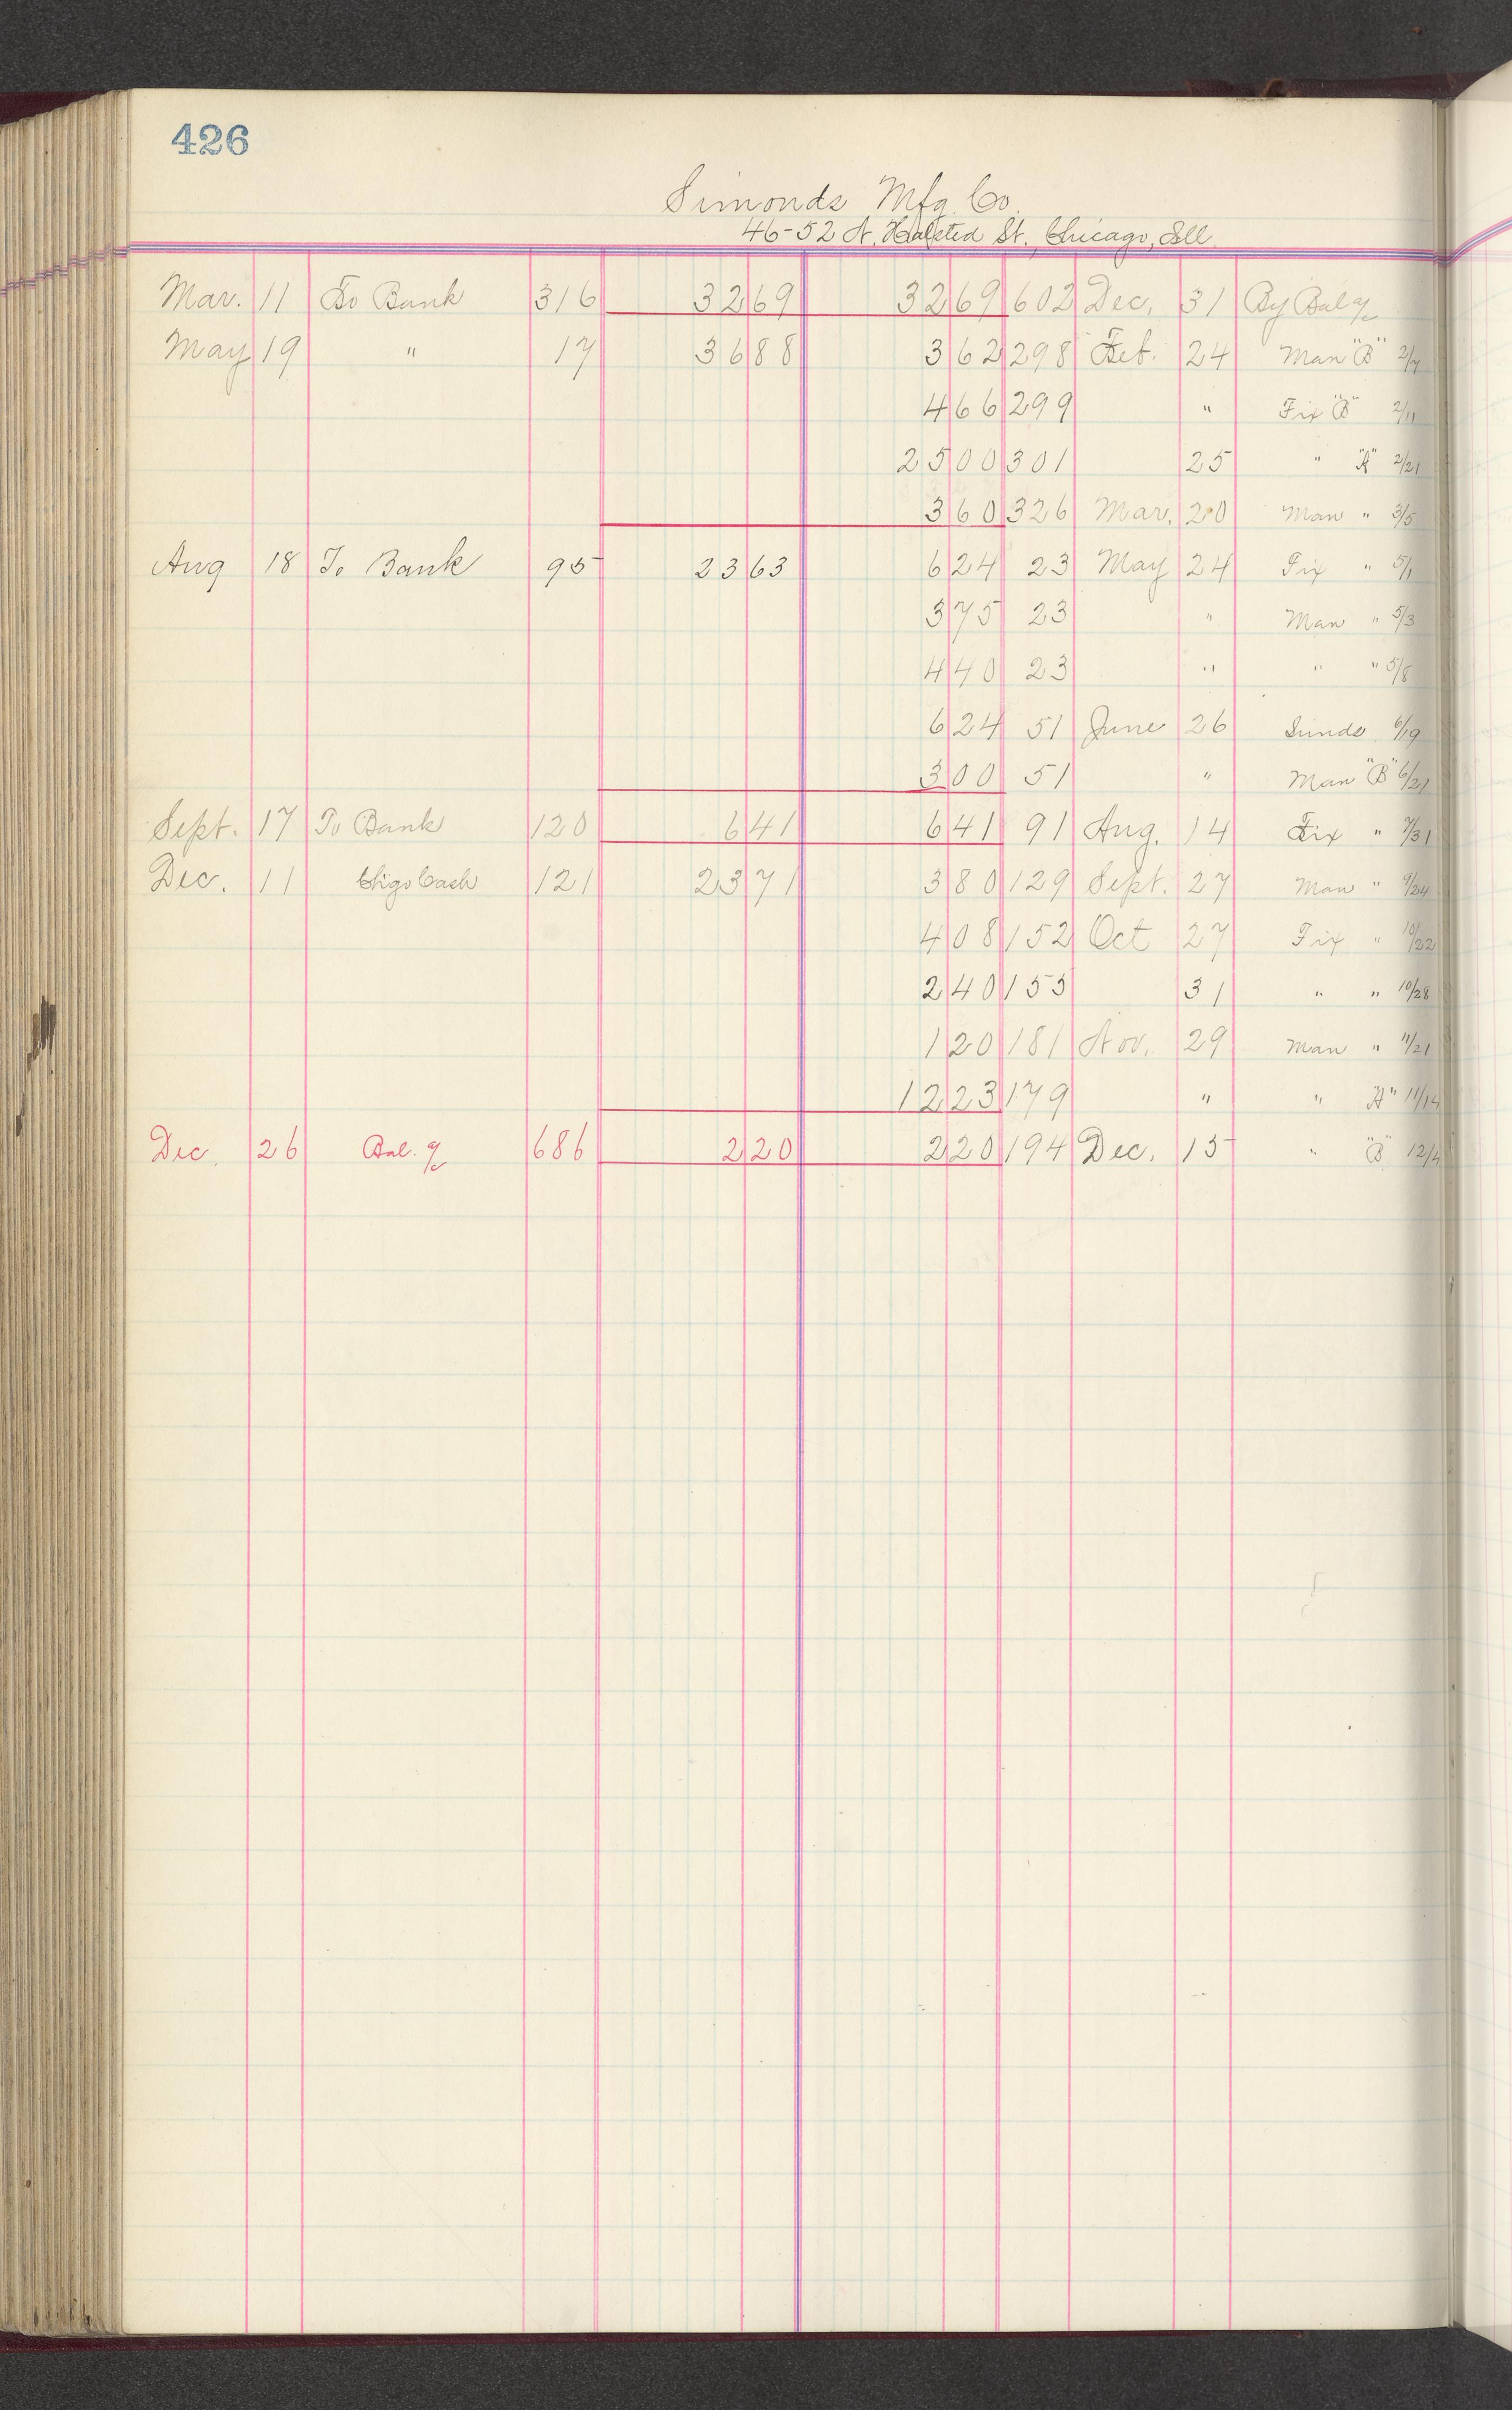 426
Simonds Mfg. Co.
46-52 N. Halsted St., Chicago, Ill.
Mar. 11 To Bank 316 32 69 32 69 602 Dec. 31 By Bal a/c
May 19 " 17 36 88 3 62 298 Feb. 24 Man "B" 2/7
4 66 299 " Fix "B" 2/11
25 00 301 25 " "A" 2/21
3 60 326 Mar. 20 Man " 3/5
Aug 18 To Bank 95 23 63 6 24 23 May 24 Fix " 5/1
3 75 23 " Man " 5/3
4 40 23 " " " 5/8
6 24 51 June 26 Sunds 6/19
3 00 51 " Man "B" 6/21
Sept. 17 To Bank 120 6 41 6 41 91 Aug. 14 Fix " 7/31
Dec. 11 Chgo Cash 121 23 71 3 80 129 Sept. 27 Man " 9/24
4 08 152 Oct 27 Fix " 10/22
2 40 155 31 " " 10/28
1 20 181 Nov. 29 Man " 11/21
12 23 179 " " "A" 11/14
Dec. 26 Bal. a/c 686 2 20 2 20 194 Dec. 15 " "B" 12/4